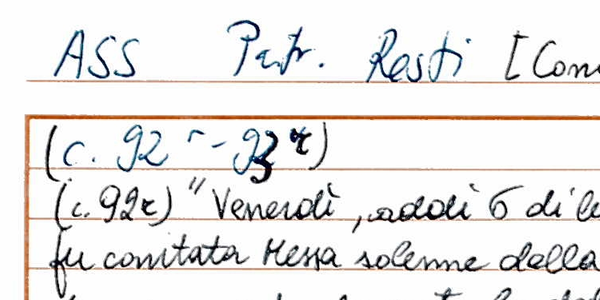 ASS Patr. Resti [Con
(c. 92r-93r)
(c. 92r) "Venerdì, addì 6 di lu
fu comitata Messa solenne dalla